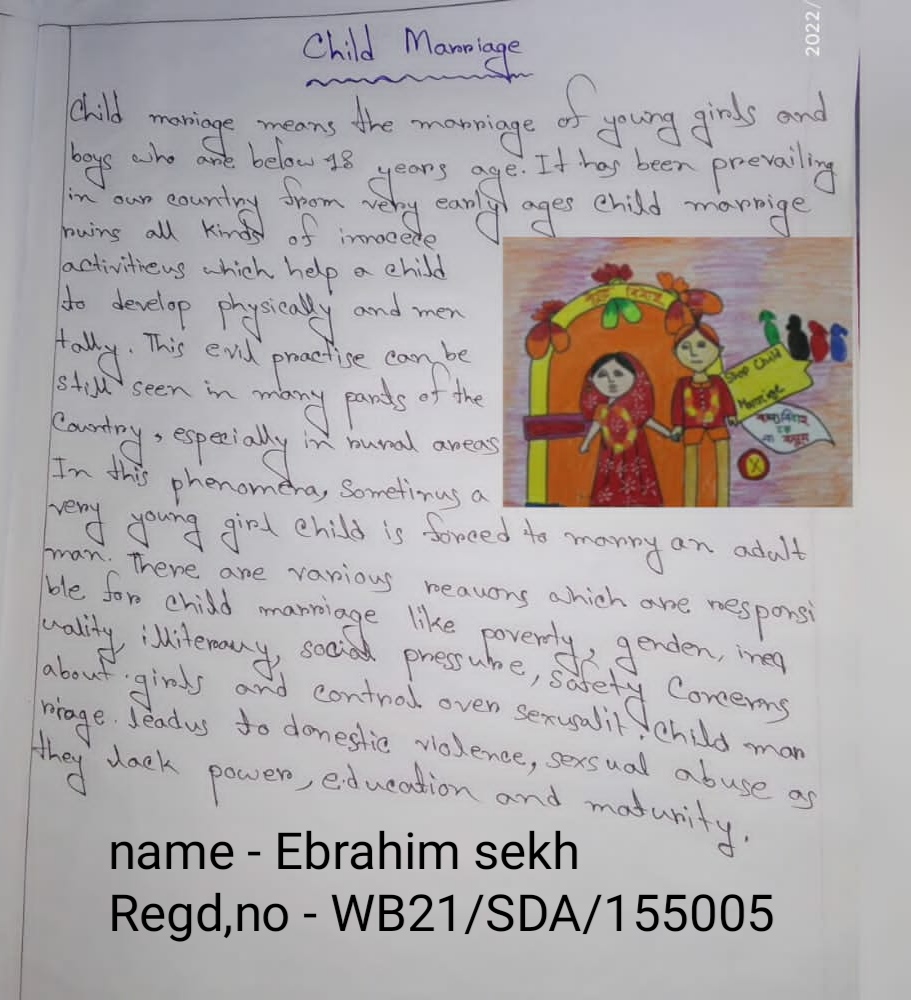 2022/
Child Marriage
Child marriage means the marriage of young girls and
boys who are below 18 years age. It has been prevailing
in our country from very early ages Child marrige
ruins all kinds of innocede
activitieus which help a child
to develop physically and men
tally. This evil practise can be
still seen in many pards of the
Country, especially in rural areas
In this phenomena, Sometimus a
very young girl child is forced to marry an adult
man. There are various reauons which are responsi
ble for child marriage like poverty, gender, ineq
uality, illiteracy, social pressure, safety Concerns
about girls and control over sexusalit. Child mar
riage. leadus to domestic violence, sexsual abuse as
they lack power, education and maturity.
Stop Child
Marriage
बाल विवाह
name - Ebrahim sekh
Regd,no - WB21/SDA/155005